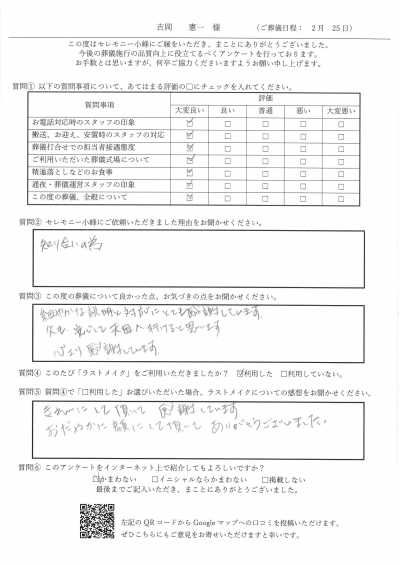 吉岡 憲一 様 （ご葬儀日程： 2月 25日）
この度はセレモニー小峰にご縁をいただき、まことにありがとうございました。
今後の葬儀施行の品質向上に役立てるべくアンケートを行っております。
お手数とは思いますが、何卒ご協力くださいますようお願い申し上げます。
質問① 以下の質問事項について、あてはまる評価の□にチェックを入れてください。
質問事項 評価
大変良い 良い 普通 悪い 大変悪い
お電話対応時のスタッフの印象 ☑ □ □ □ □
搬送、お迎え、安置時のスタッフの対応 ☑ □ □ □ □
葬儀打合せでの担当者接遇態度 ☑ □ □ □ □
ご利用いただいた葬儀式場について ☑ □ □ □ □
精進落としなどのお食事 ☑ □ □ □ □
通夜・葬儀運営スタッフの印象 ☑ □ □ □ □
この度の葬儀、全般について ☑ □ □ □ □
質問② セレモニー小峰にご依頼いただきました理由をお聞かせください。
知り合いの為
質問③ この度の葬儀について良かった点、お気づきの点をお聞かせください。
細やかな説明と対応にとても感謝しています。
安心して天国へ行けると思います
心より感謝しています
質問④ このたび「ラストメイク」をご利用いただきましたか？ ☑利用した □利用していない。
質問⑤ 質問④で「□利用した」お選びいただいた場合、ラストメイクについての感想をお聞かせください。
きれいにして頂いて 感謝しています
おだやかに顔にして頂いて ありがとうございました。
質問⑥ このアンケートをインターネット上で紹介してもよろしいですか？
☑かまわない □イニシャルならかまわない □掲載しない
最後までご記入いただき、まことにありがとうございました。
左記のQRコードからGoogleマップへの口コミを投稿いただけます。
ぜひこちらにもご意見をお寄せいただけますと幸いです。